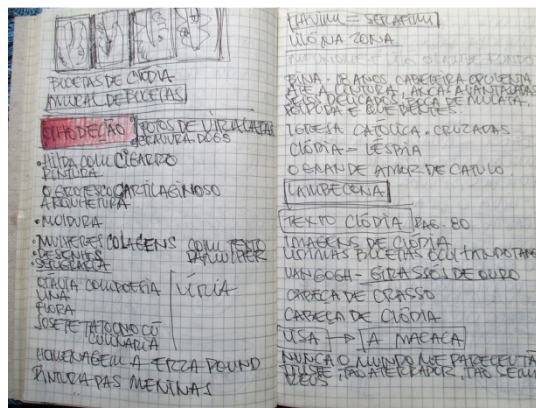 BUCETAS DE CLÓDIA
DE BUCETAS
OLHO DE CÃO
FOTOS DE VIRALATAS
DOGS
• HILDA COM CIGARRO
PINTURA
O GROTESCO CARTILAGINOSO
ARQUITETURA
• MOLDURA
• MULHERES COLAGENS COM TEXTO
• DESENHOS
• SERIGRAFIA
OTÁVIA COM POESIA
LINA
FLORA
LÍRIA
JOSETE TATO NO CÚ
CULINÁRIA
HOMENAGEM A EZRA POUND
PINTURA DAS MENINAS
ZONA
BINA - 18 ANOS, CABELEIRA OPULENTA
ATÉ A CINTURA, ANCAS AVANTAJADAS
SEIOS DELICADOS, BOCA DE MULATA,
POLPUDA E BONS DENTES.
IGREJA CATÓLICA. CRUZADAS
CLÓDIA = LÉSBIA
O GRANDE AMOR DE CATULO
LAMBECONA
TEXTO CLÓDIA PAG. 80
IMAGENS DE CLÓDIA
BUCETAS
VANGOGH - GIRASSÓIS DE OURO
CABEÇA DE CRASSO
CABEÇA DE CLÓDIA
USA → A MACACA
NUNCA O MUNDO ME PARECEU TÃO
TRISTE, TÃO ATERRADOR, TÃO SEM
DEUS